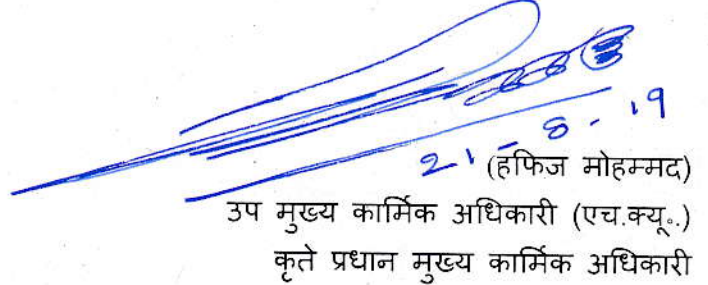 21-8-19
(हफिज मोहम्मद)
उप मुख्य कार्मिक अधिकारी (एच.क्यू॰.)
कृते प्रधान मुख्य कार्मिक अधिकारी